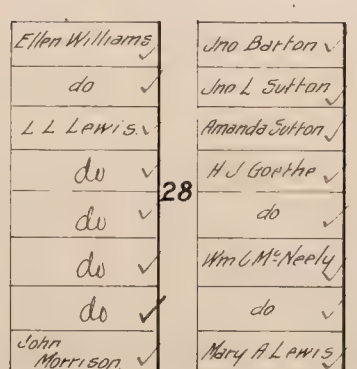 Ellen Williams
do
L L Lewis
do
do
do
do
John
Morrison
28
Jno Barton
Jno L Sutton
Amanda Sutton
H J Goethe
do
Wm C McNeely
do
Mary A Lewis